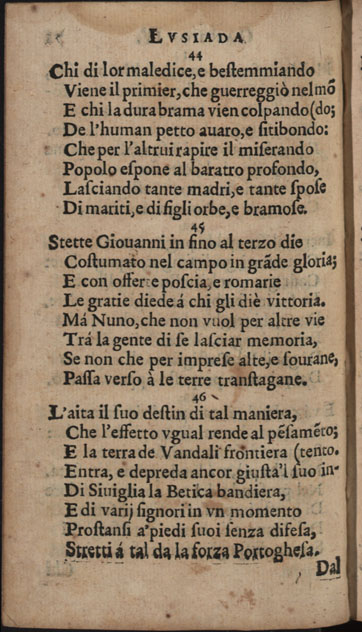 LVSIADA
44
Chi di lor maledice, e beſtemmiando
Viene il primier, che guerreggiò nel mõ
E chi la dura brama vien colpando (do;
De l'human petto auaro, e ſitibondo:
Che per l'altrui rapire il miſerando
Popolo eſpone al baratro profondo,
Laſciando tante madri, e tante ſpoſe
Di mariti, e di figli orbe, e bramoſe.
45
Stette Giouanni in fino al terzo die
Coſtumato nel campo in grãde gloria;
E con offerte poſcia, e romarie
Le gratie diede á chi gli diè vittoria.
Má Nuno, che non vuol per altre vie
Trá la gente di ſe laſciar memoria,
Se non che per impreſe alte, e ſourane,
Paſſa verſo à le terre tranſtagane.
46
L'aita il ſuo deſtin di tal maniera,
Che l'effetto vgual rende al pẽſamẽto;
E la terra de Vandali frontiera (tento.
Entra, e depreda ancor giuſta'l ſuo in-
Di Siuiglia la Betica bandiera,
E di varij ſignori in vn momento
Proſtanſi a'piedi ſuoi ſenza difeſa,
Stretti á tal da la forza Portogheſa.
Dal